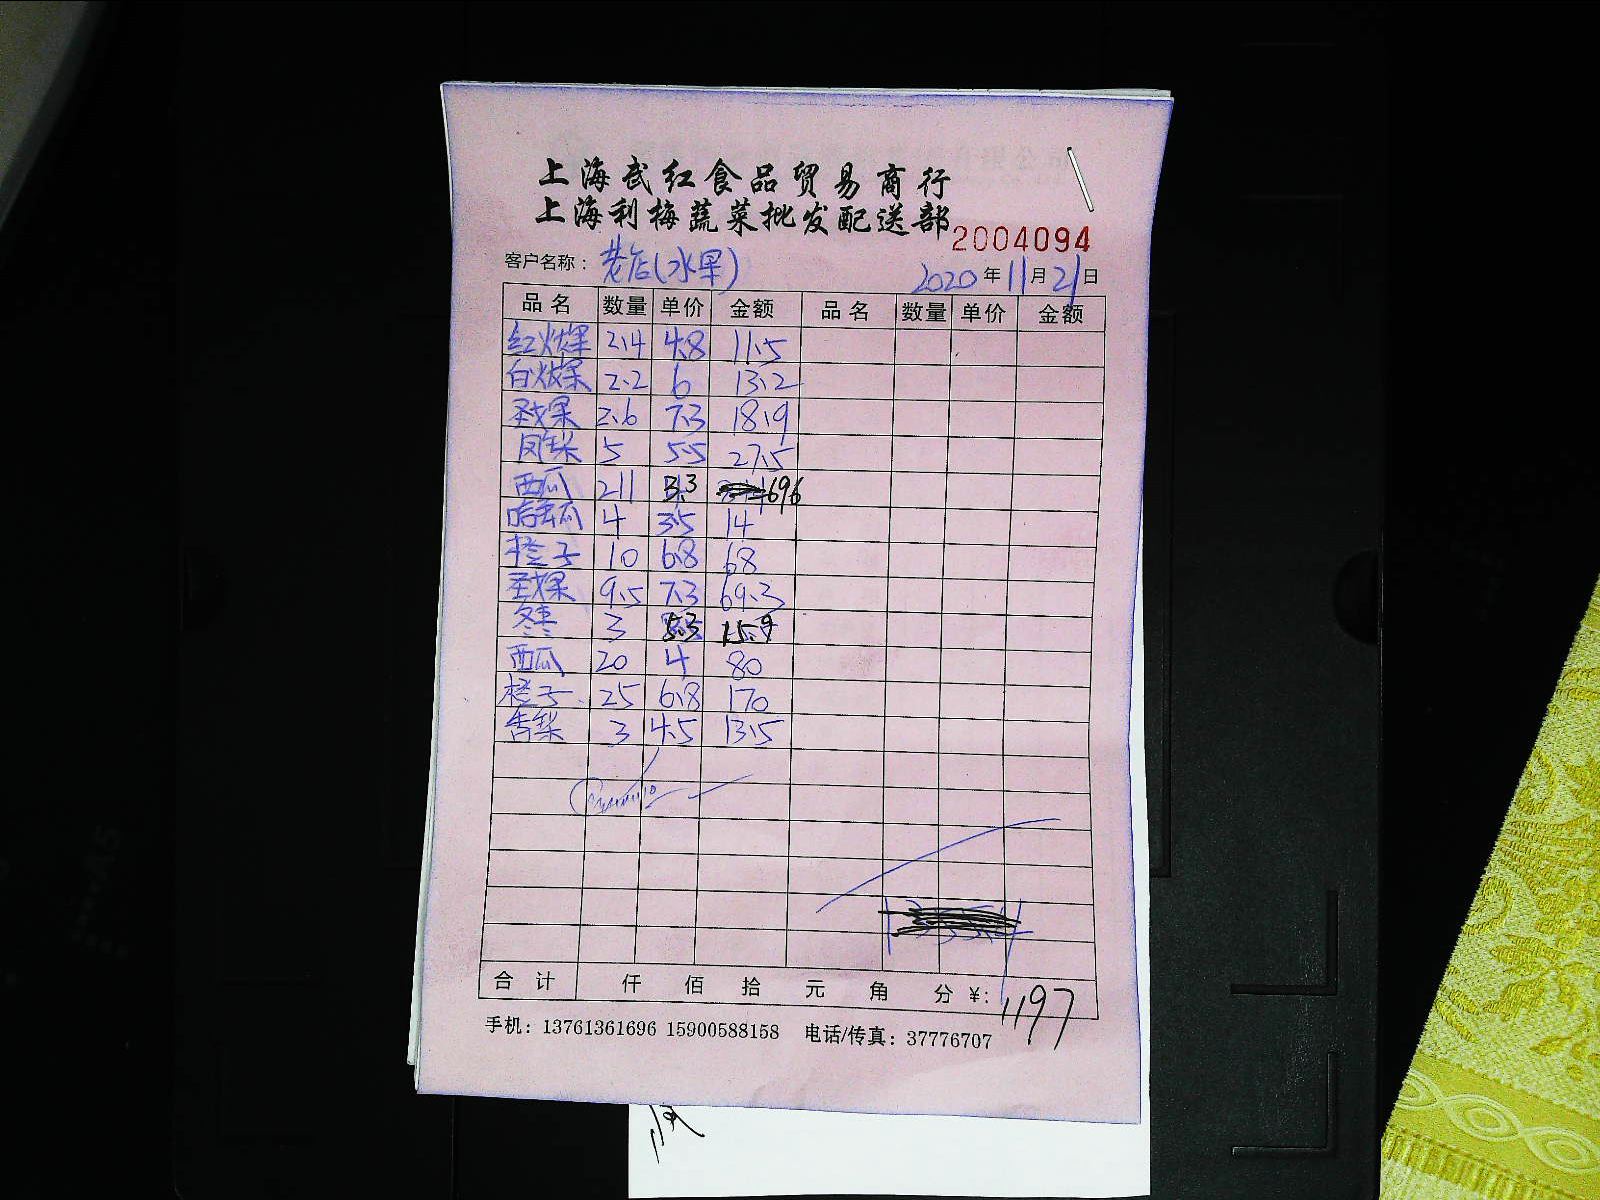 上海武红食品贸易商行
上海利梅蔬菜批发配送部
2004094
客户名称：老店(水果) 2020年11月21日
品名 数量 单价 金额 品名 数量 单价 金额
红火龙果 2.4 4.8 11.5
白火龙果 2.2 6 13.2
圣女果 2.6 7.3 18.9
凤梨 5 5.5 27.5
西瓜 211 3.3 696
哈密瓜 4 3.5 14
橙子 10 6.8 68
圣女果 9.5 7.3 69.3
冬枣 3 5.3 15.9
西瓜 20 4 80
橙子 25 6.8 170
香梨 3 4.5 13.5
合计 仟 佰 拾 元 角 分 ¥: 1197
手机：13761361696 15900588158 电话/传真：37776707